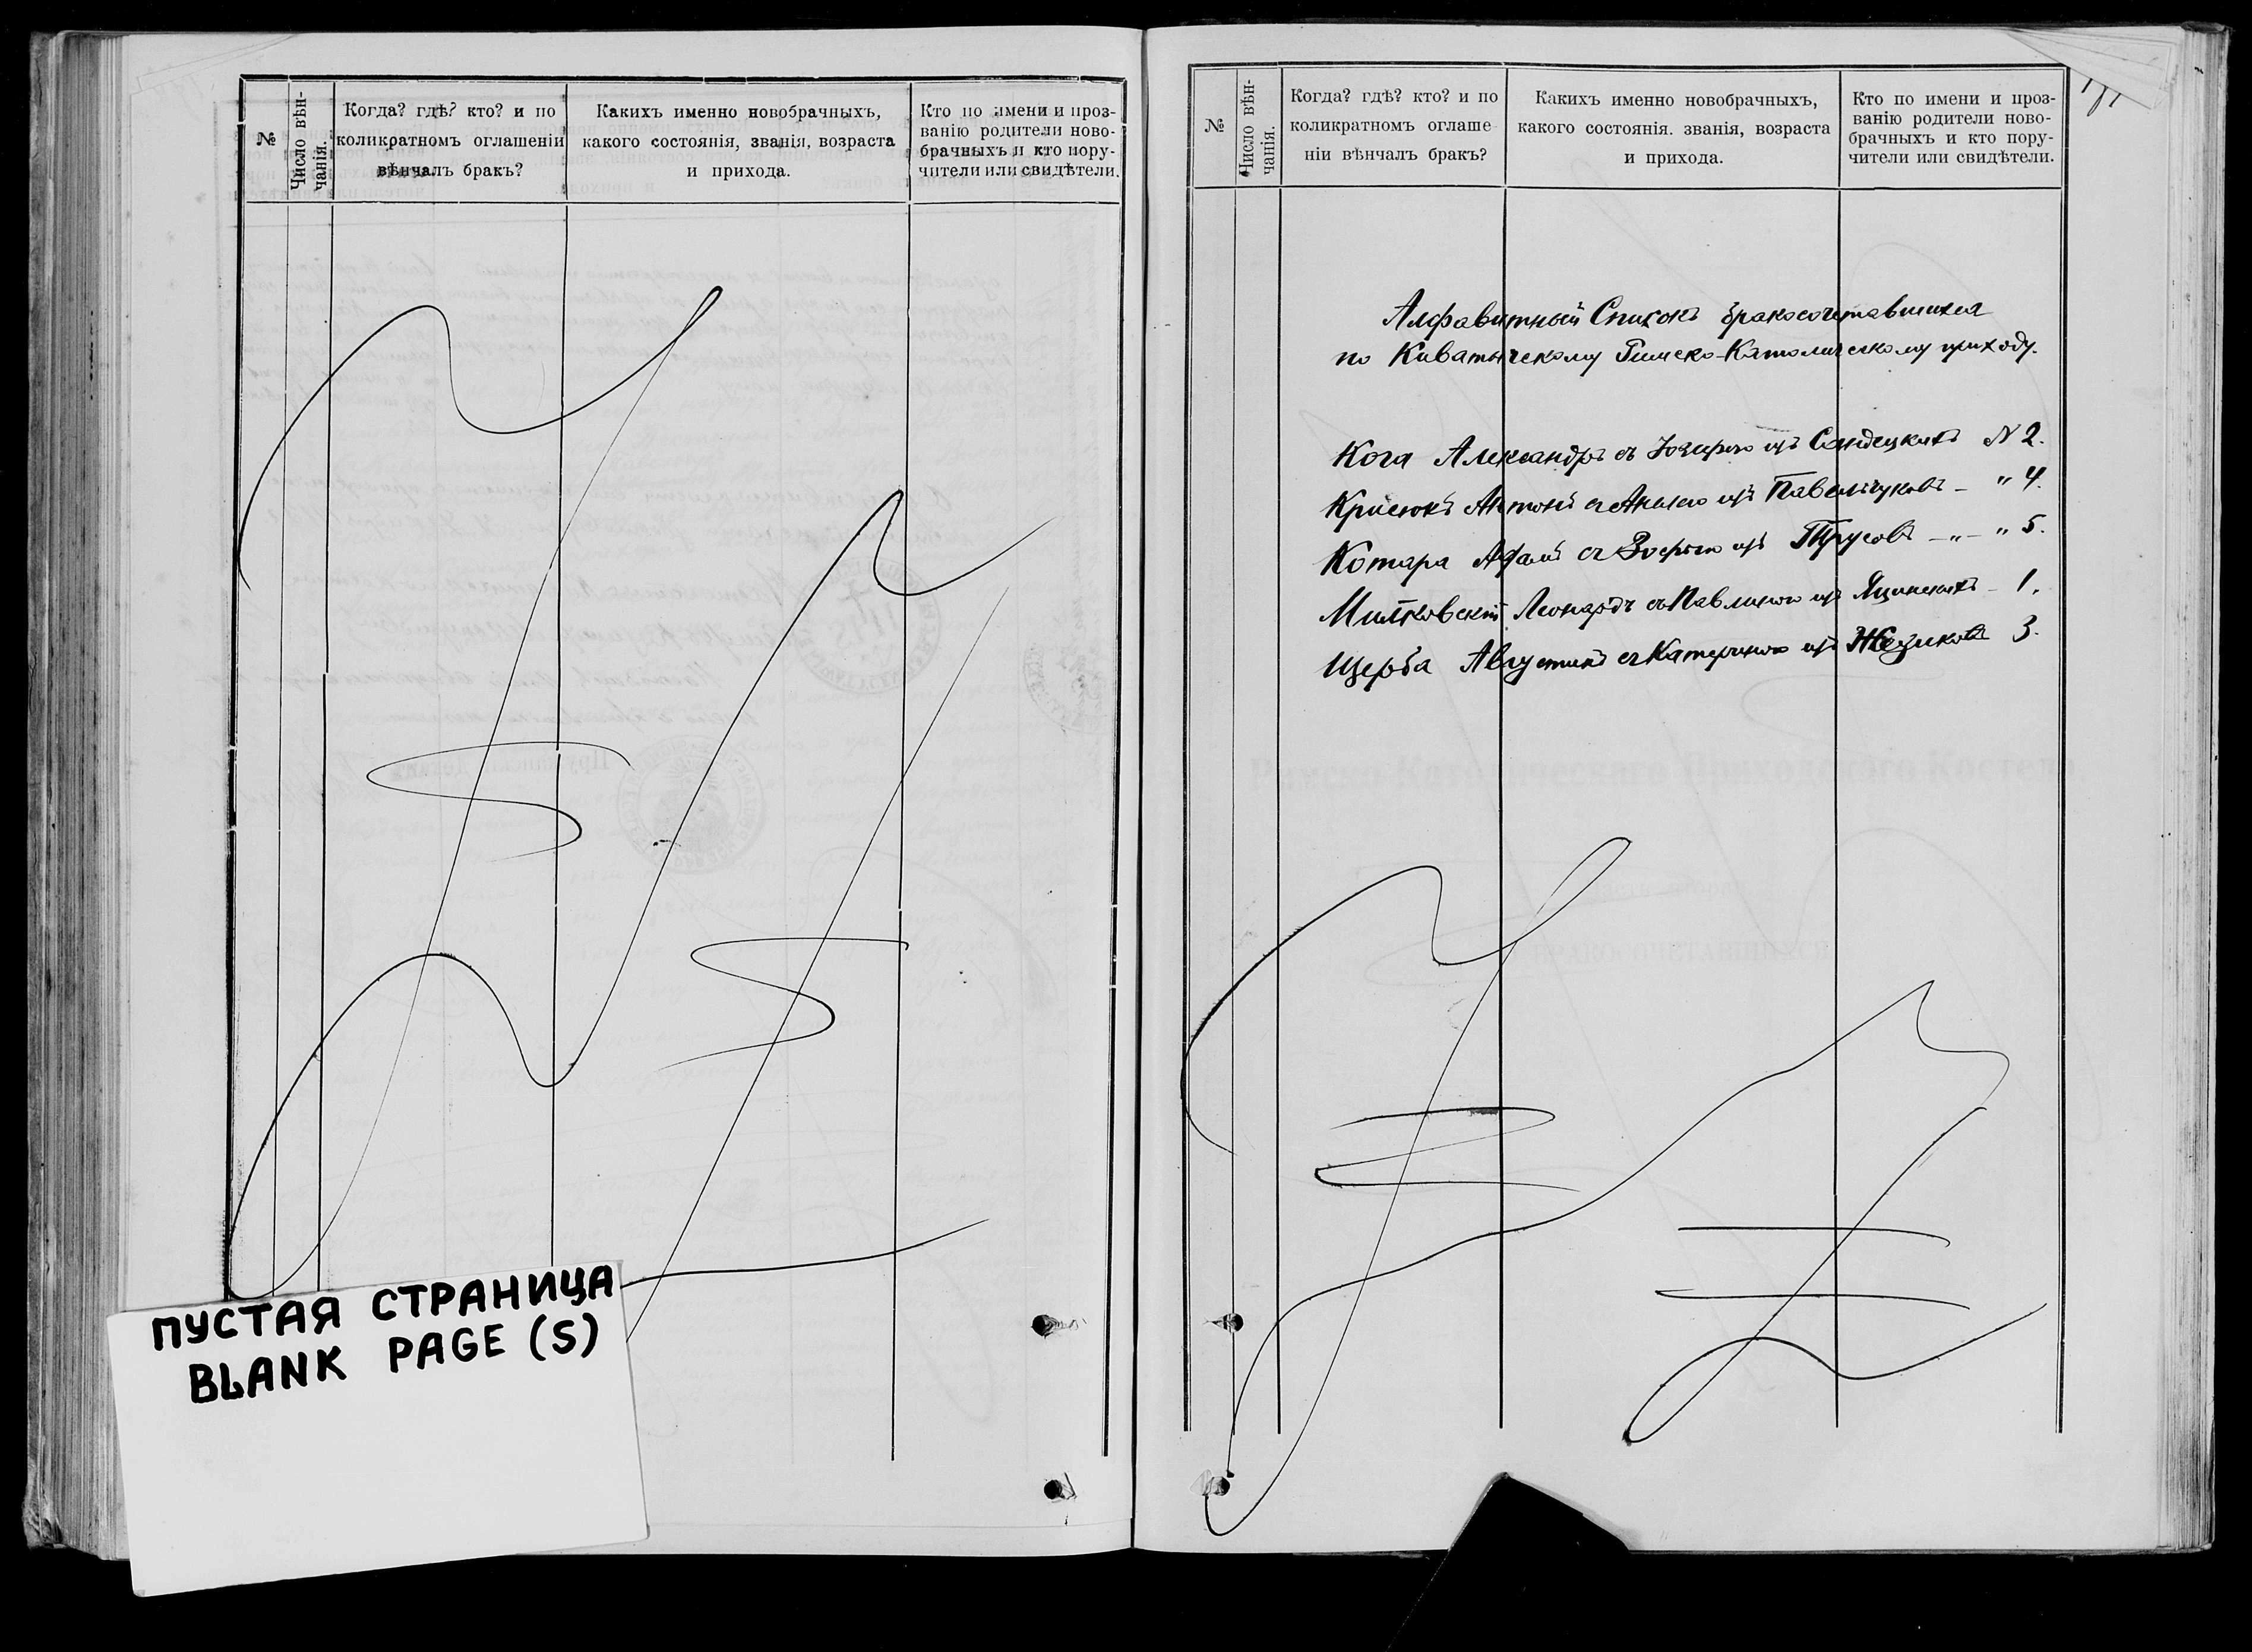 №
Число вѣн-
чанія.
Когда? гдѣ? кто? и по
коликратномъ оглашеніи
вѣнчалъ бракъ?
Какихъ именно новобрачныхъ,
какого состоянія, званія, возраста
и прихода.
Кто по имени и проз-
ванію родители ново-
брачныхъ и кто пору-
чители или свидѣтели.
ПУСТАЯ СТРАНИЦА
BLANK PAGE (S)
№
Число вѣн-
чанія.
Когда? гдѣ? кто? и по
коликратномъ оглаше
ніи вѣнчалъ бракъ?
Какихъ именно новобрачныхъ,
какого состоянія. званія, возраста
и прихода.
Кто по имени и проз-
ванію родители ново-
брачныхъ и кто пору-
чители или свидѣтели.
Алфавитный Списокъ бракосочетавшихся
по Киватыческому Римско-Католическому приходу.
Кога Александръ съ Юзефою изъ Сандецкихъ N 2.
Крисюкъ Антонъ съ Анелею изъ Павельчуковъ - " 4.
Котара Адамъ съ Зофіею изъ Трусовъ - " - " 5.
Милковскій Леонардъ съ Павлиною изъ Яцинскихъ - 1.
Щерба Августинъ съ Катериною изъ 3.